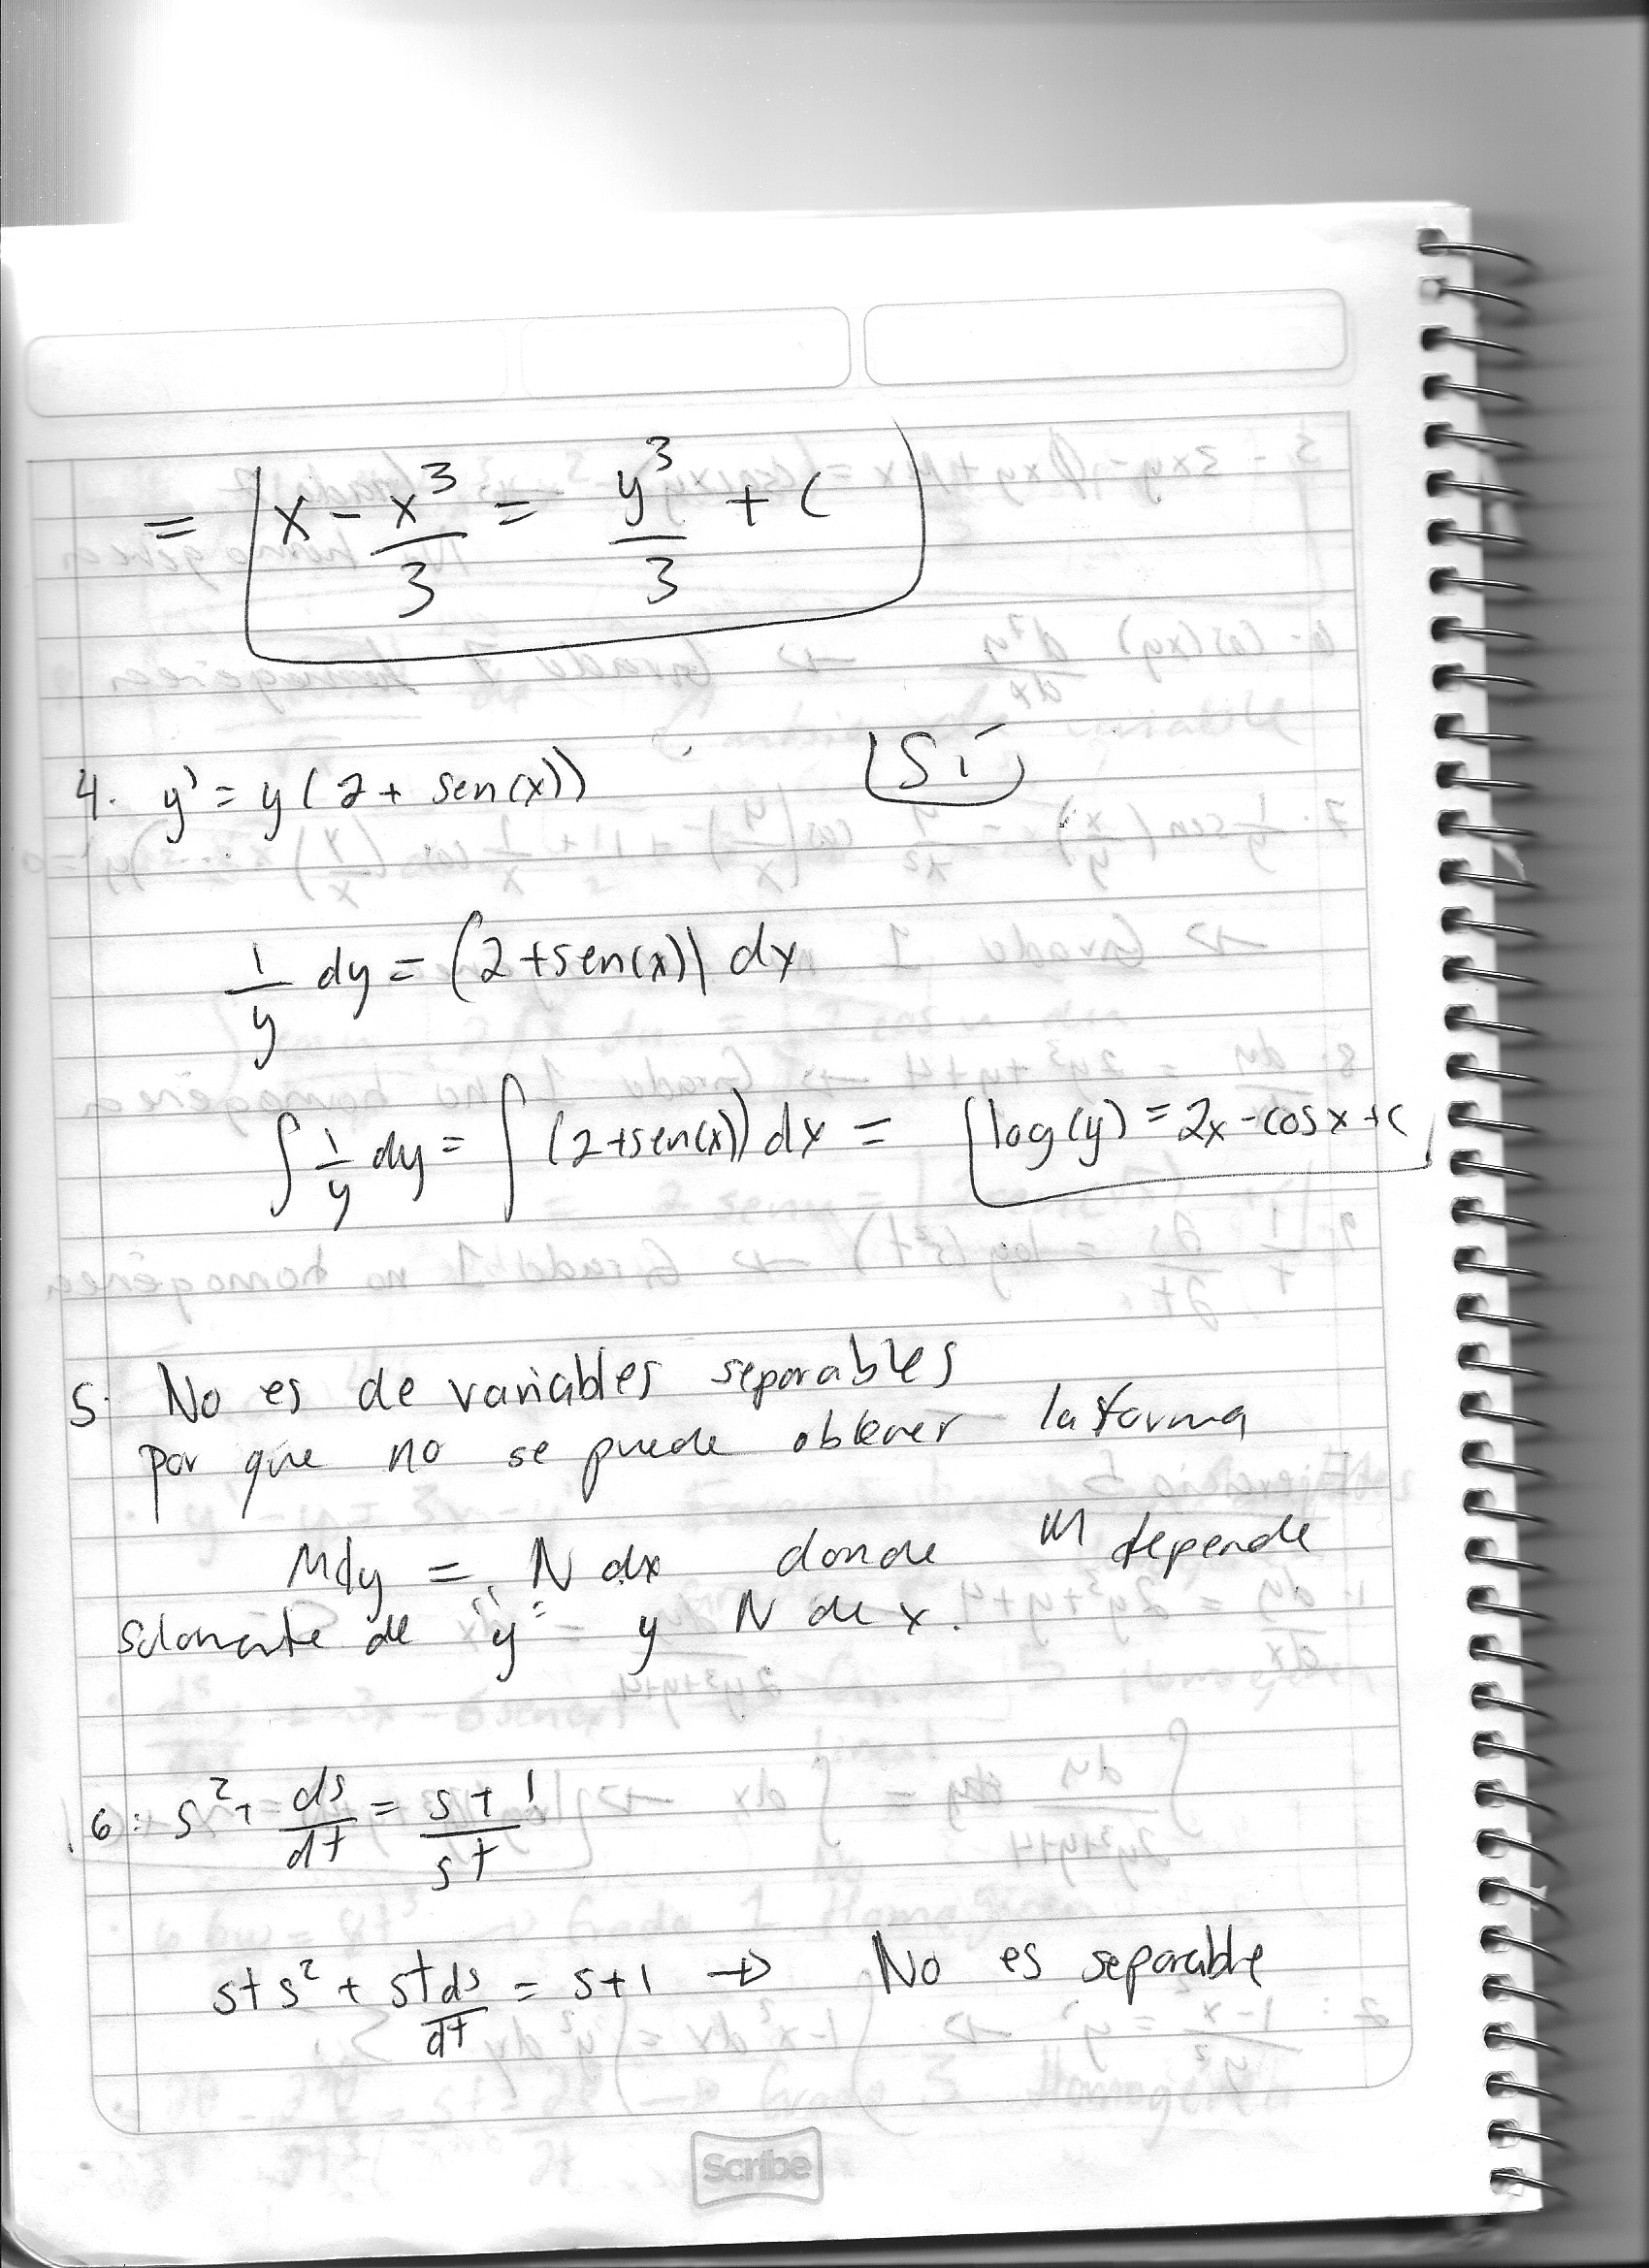 = x - x³/3 = y³/3 + c
4. y' = y(2 + sen(x)) Sí
1/y dy = (2+sen(x)) dx
∫ 1/y dy = ∫ (2+sen(x)) dx = log(y) = 2x - cosx + c
5. No es de variables separables
por que no se puede obtener la forma
Mdy = N dx donde M depende
solamente de "y" y N de x.
6: s² + ds/dt = s+1/st
sts² + st ds/dt = s+1 → No es separable
Scribe